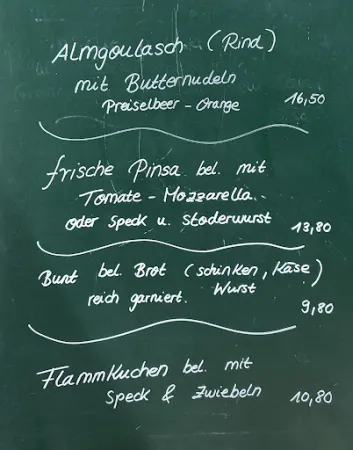 Almgoulasch (Rind)
mit Butternudeln
Preiselbeer - Orange 16,50
frische Pinsa bel. mit
Tomate - Mozzarella
oder Speck u. Stoderwurst 13,80
Bunt bel. Brot (schinken, Käse)
reich garniert. Wurst
9,80
Flammkuchen bel. mit
Speck & Zwiebeln 10,80